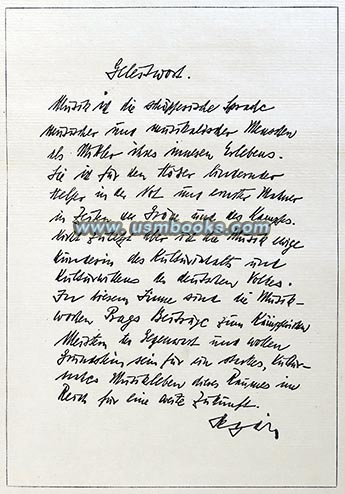 Geleitwort.
Musik ist die schöpferische Sprache
musischer und musikalischer Menschen
als Mittler ihres inneren Erlebens.
Sie ist für den Hörer lindernder
Helfer in der Not und ernster Mahner
in Zeiten der Größe und des Kampfes.
www.usmbooks.com
Nicht zuletzt aber ist die Musik
Künderin der Kulturkraft und
Kulturwillens des deutschen Volkes.
In diesem Sinne sind die Musik-
wochen Prags Beiträge zum kämpfenden
der Gegenwart und wollen
Grundstein sein für ein starkes, kultur-
Musikleben dieses Raumes im
Reich für eine Zukunft.